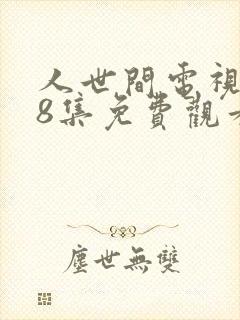 人世間電視
8集免費觀看
塵世無雙